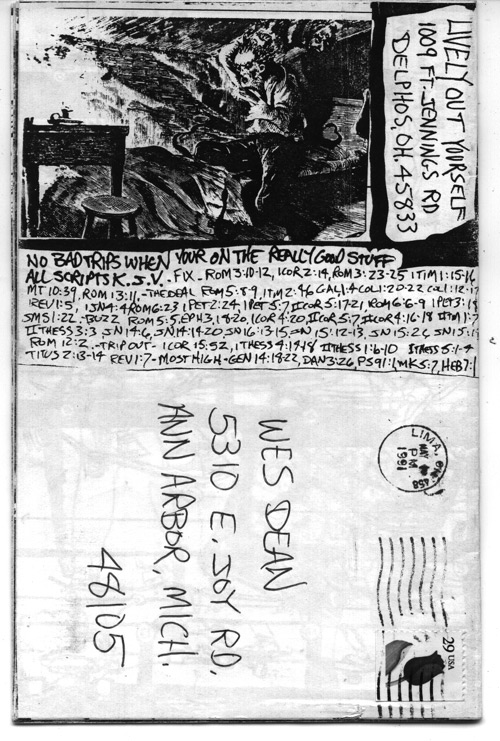 LIVELY OUT YOURSELF
1009 FT. JENNINGS RD
DELPHOS, OH. 45833
NO BAD TRIPS WHEN YOUR ON THE REALLY GOOD STUFF
ALL SCRIPTS K.J.V. - FIX - ROM 3:10-12, I COR 2:14, ROM 3:23-25 I TIM 1:15-16
MT 10:39, ROM 13:11, - THE DEAL ROM 5:8-9, I TIM 2:4-6 GAL 1:4 COL 1:20-22 COL 1:12-17
I REV 1:5, I JN 4:4 ROM 6:23 I PET 2:24 I PET 5:7 II COR 5:17-21 ROM 6:6-9 I PET 3:18
SMS 51:22. - BUZZ ROM 5:5, EPH 3,18-20, I COR 4:20, II COR 5:7 II COR 4:16-18 II TIM 1:7
II THESS 3:3 JN 14:6, JN 14:14-20, JN 16:13-15, JN 15:12-13, JN 15:26, JN 15:
ROM 12:2. - TRIP OUT - I COR 15:52, I THESS 4:17-18 II THESS 1:6-10 I THESS 5:1-4
TITUS 2:13-14 REV 1:7 - MOST HIGH - GEN 14:18-22, DAN 3:26, PS 91:1, MK 5:7, HEB 7:1
LIMA, OH 458
MAY
PM
1991
WES DEAN
5310 E. JOY RD.
ANN ARBOR, MICH.
48105
29 USA